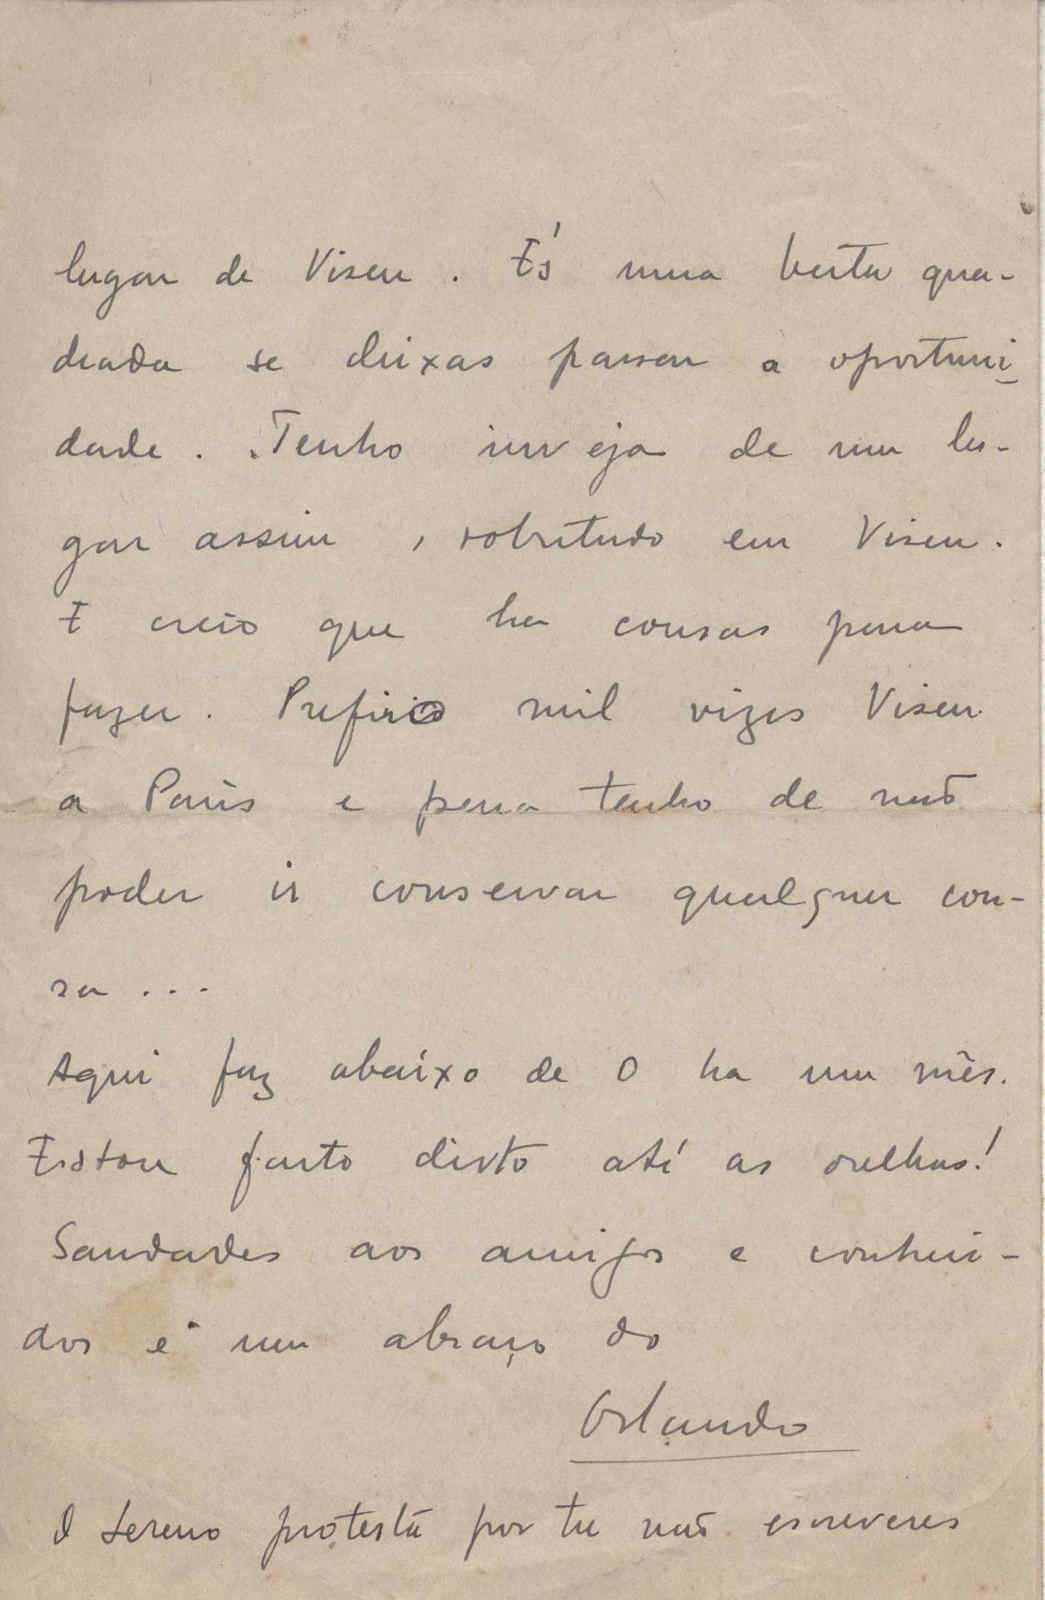 lugar de Viseu. És uma besta qua-
drada se deixas passar a oportuni-
dade. Tenho inveja de um lu-
gar assim, sobretudo em Viseu.
E creio que ha cousas para
fazer. Prefiro mil vezes Viseu
a Paris e pena tenho de não
poder ir conservar qualquer cou-
sa ...
Aqui faz abaixo de 0 ha um mês.
Estou farto disto até as orelhas!
Saudades aos amigos e conheci-
dos e um abraço do
Orlando
O Sereno protesta por tu não escreveres